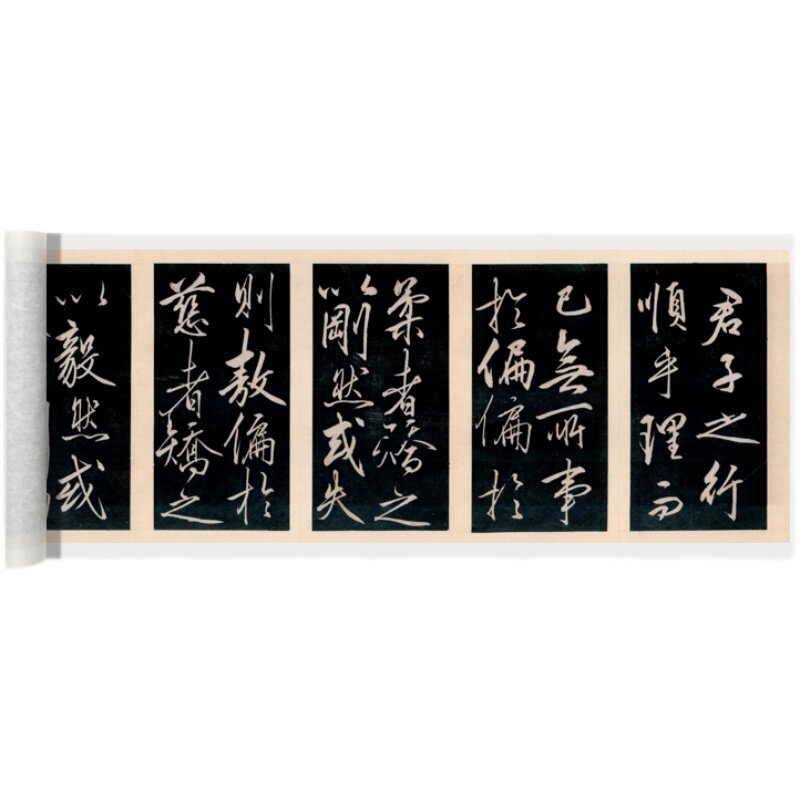 君子之行
順乎理而
已無所事
於偏偏於
柔者矯之
以剛然或失
則敖偏於
慈者矯之
以毅然或